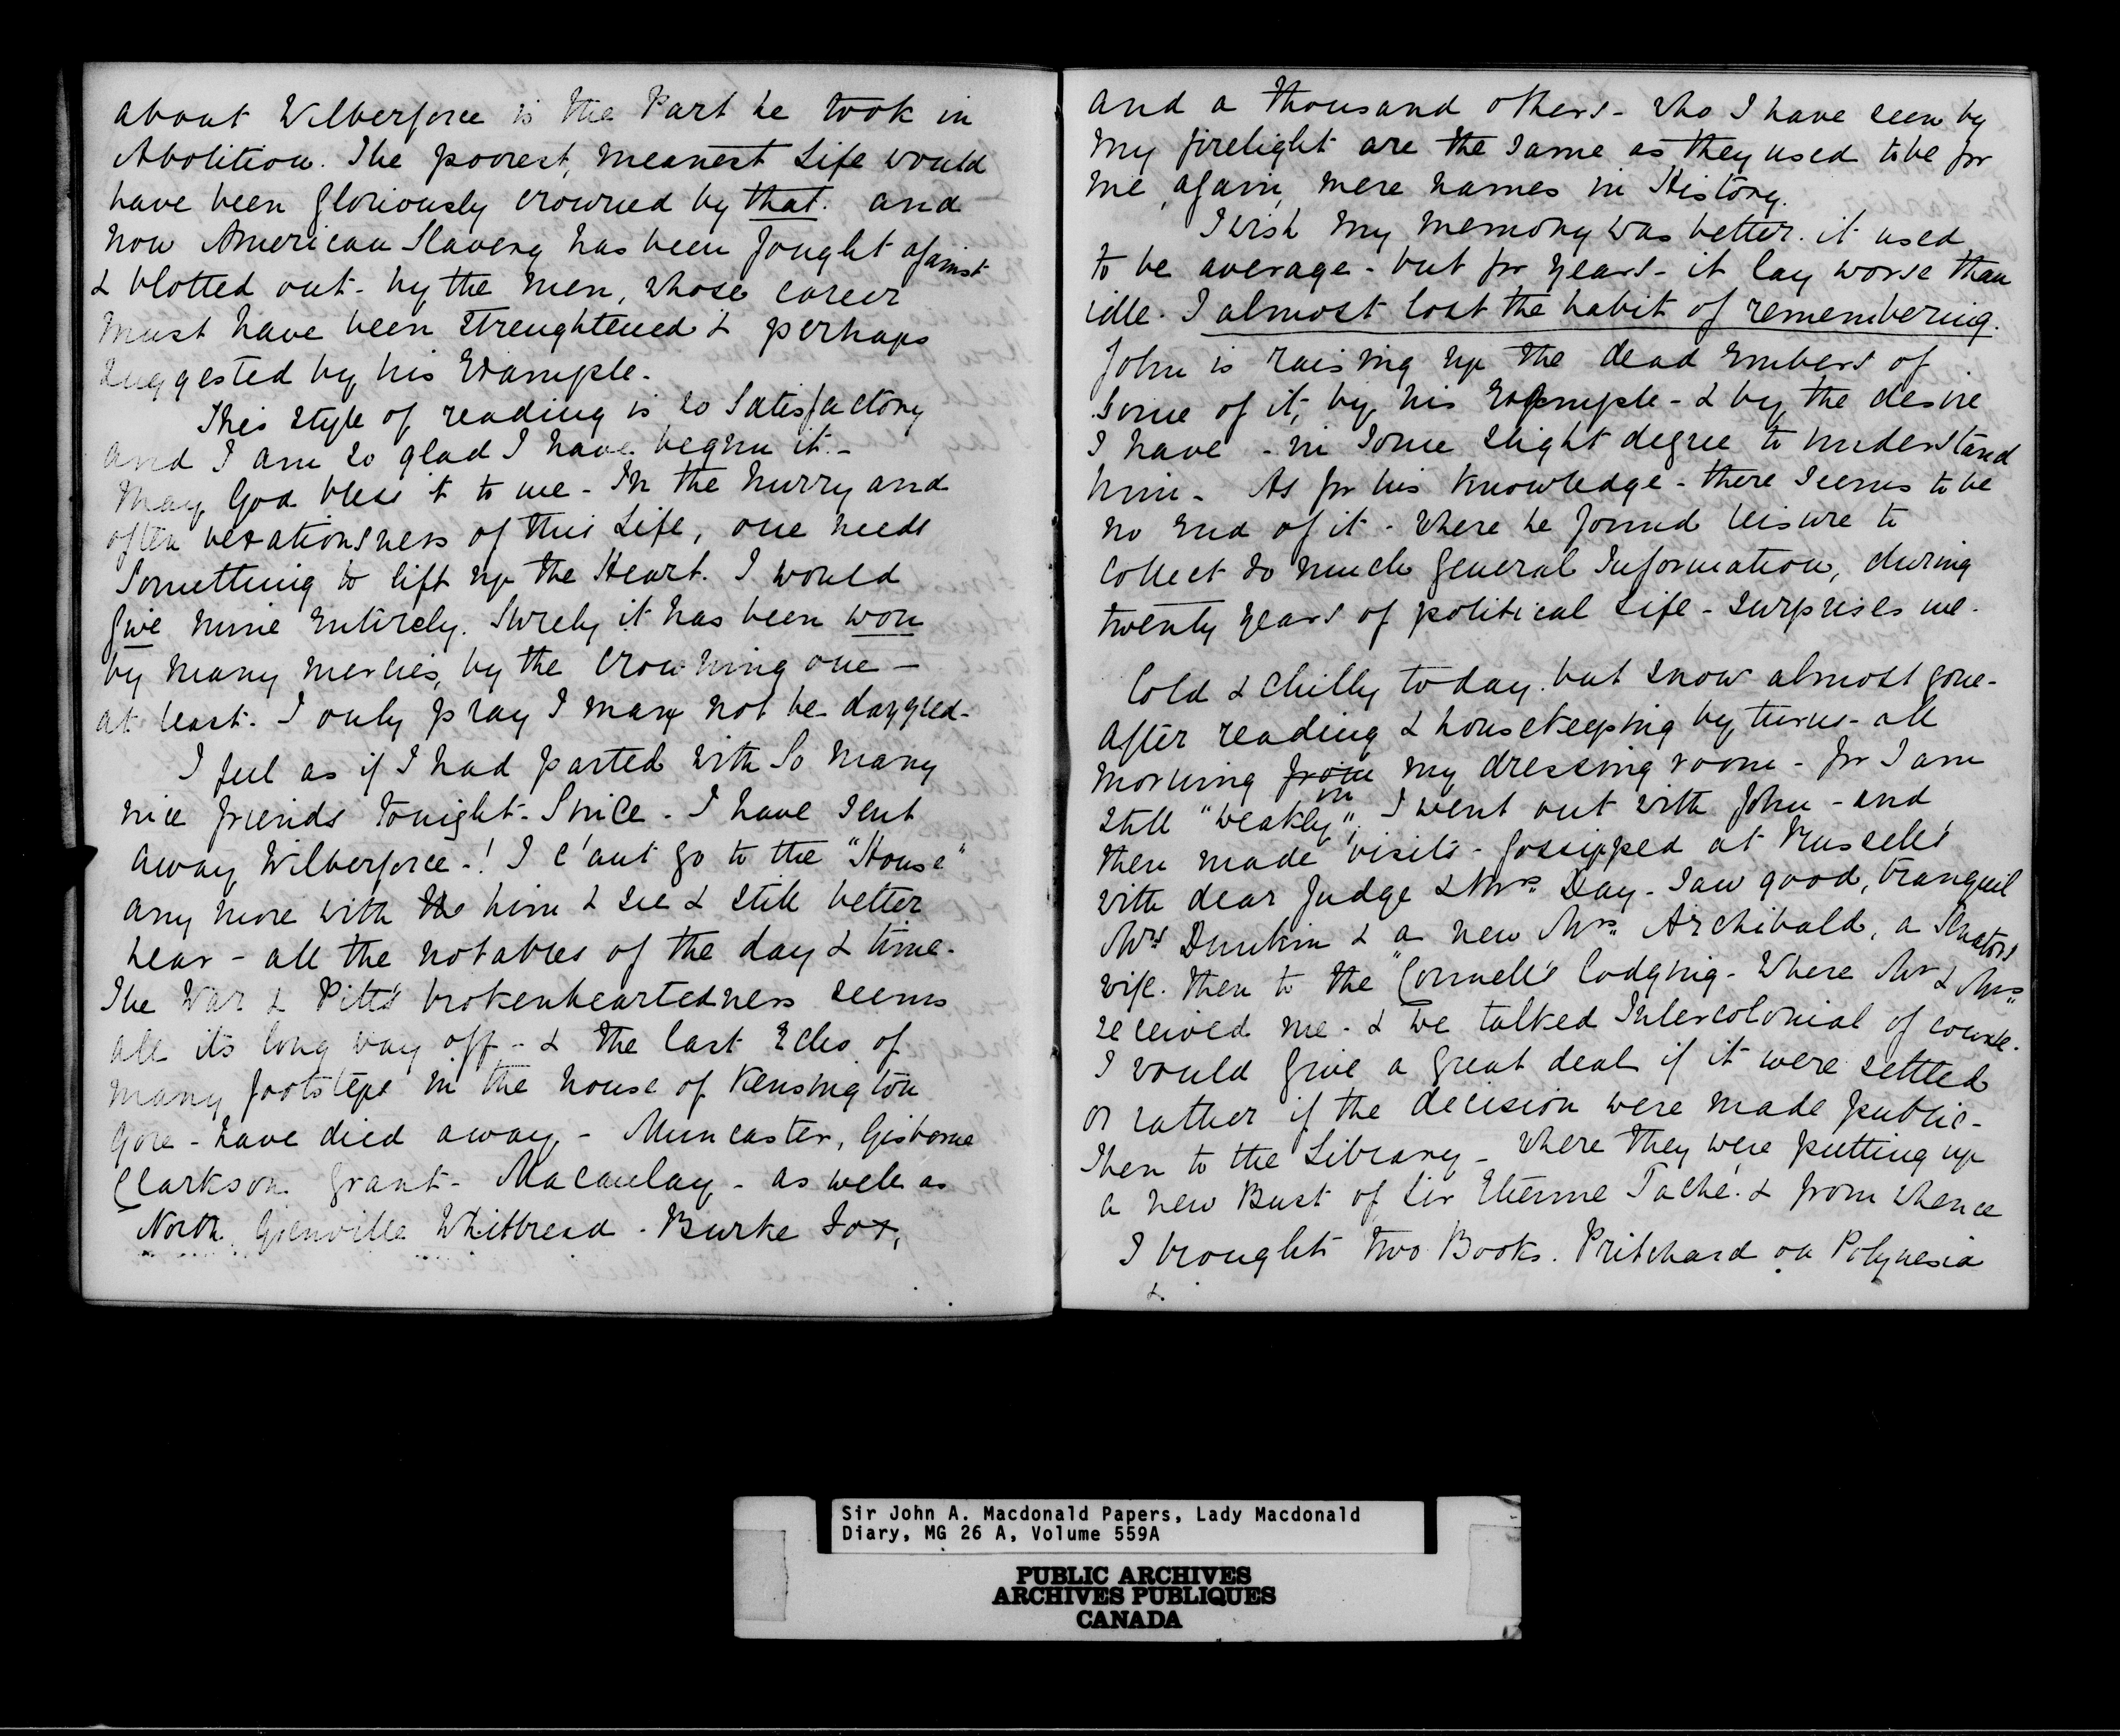 about Wilberforce is the Part he took in
Abolition. The poorest, meanest Life would
have been gloriously crowned by that. and
now American Slavery has been fought against
& blotted out - by the men, whose career
must have been strenghtened & perhaps
suggested by his Example.
This style of reading is so Satisfactory
and I am so glad I have begun it. -
May God bless it to me - In the hurry and
often vexationsness of this Life, one needs
Something to lift up the Heart. I would
give mine Entirely. Surely it has been won
by many mercies, by the crowning one -
at least. I only pray I may not be
I feel as if I had parted with So many
nice friends tonight - Since - I have sent
away Wilberforce - ! I c'ant go to the "House"
any more with the him & see & still better
hear - all the notables of the day & time -
The War & Pitt's brokenheartedness seems
all its long way off - & the last Echo of
many footsteps in the house of Kensington
Gore - have died away - Muncaster, Gisborne
Clarkson Grant - Macaulay - as well as
North, Grenville Whitbread - Burke Fox,
and a thousand others - who I have seen by
my firelight are the same as they used to be for
me, again, mere names in History.
I wish my memory was better. it used
to be average - but for years - it lay worse than
idle. I almost lost the habit of remembering.
John is raising up the dead Embers of
some of it, by his Example - & by the desire
I have - in some slight degree to understand
him - As for his knowledge - there seems to be
no End of it - where he found leisure to
collect so much general Information, during
twenty years of political life - surprises me -
Cold & chilly today. but snow almost gone -
After reading & housekeeping by turns - all
morning from my dressing room - for I am
in
still "weakly", I went out with John - and
then made visits - gossipped at Russell's
with dear Judge & Mrs. Day - Saw good, tranquil
Mrs Dunkin & a new Mrs. Archibald, a Senators
wife. then to the Connell's lodging - Where Mr & Mrs.
received me - & we talked Intercolonial of course.
I would give a great deal if it were settled
or rather if the decision were made public -
Then to the Library - where they were putting up
a new Bust of Sir Etienne Taché. & from whence
I brought two Books. Pritchard on Polynesia
&
Sir John A. Macdonald Papers, Lady Macdonald
Diary, MG 26 A, Volume 559A
PUBLIC ARCHIVES
ARCHIVES PUBLIQUES
CANADA